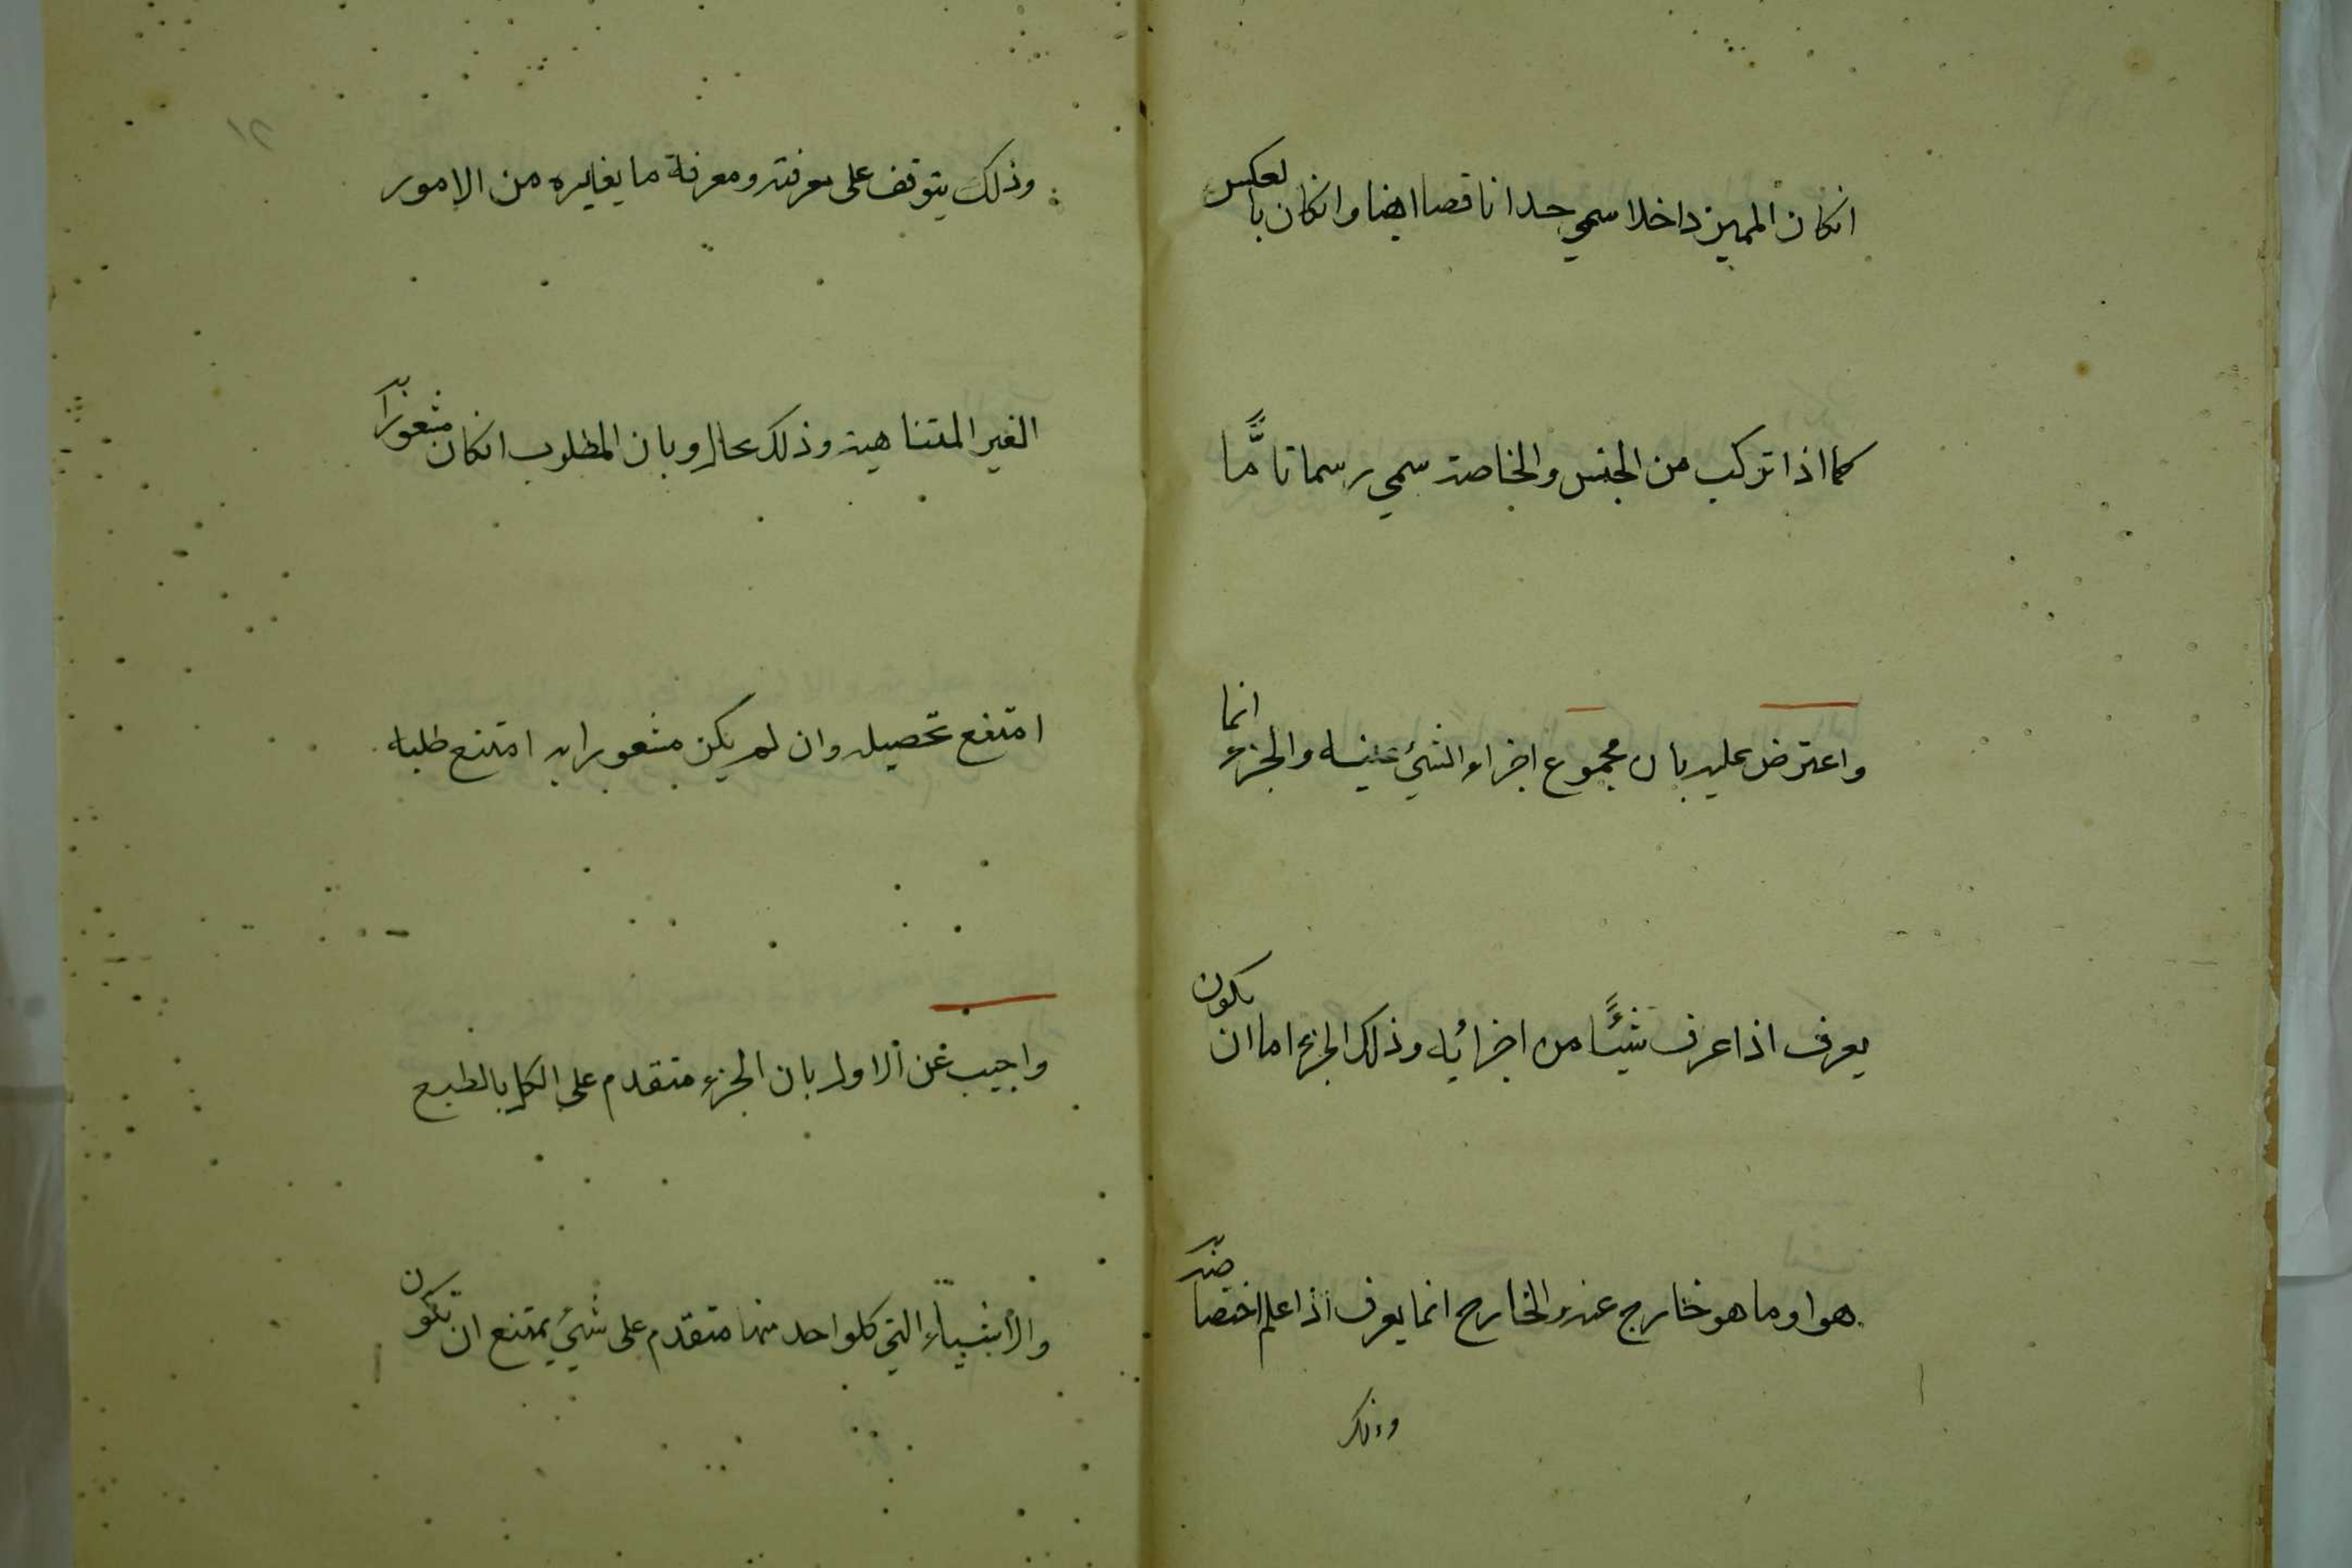 انكان المميز داخلا سمي حدا ناقصا ايضا وانكان بالعكس
كما اذا تركب من الجنس والخاصة سمي رسما تامًّا
واعترض عليه بان مجموع اجزاء الشئ عينه والجزء انما
يعرف اذا عرف شيئًا من اجزائه وذلك الجزء اما ان يكون
هو او ما هو خارج عنه والخارج انما يعرف اذا علم اختصاصه
وذلك
١٢
وذلك يتوقف على معرفته ومعرفة ما يغايره من الامور
الغير المتناهية وذلك محال وبان المطلوب انكان مشعورا به
امتنع تحصيله وان لم يكن مشعورا به امتنع طلبه
واجيب عن الاول بان الجزء متقدم على الكل بالطبع
والأشياء التي كلواحد منها متقدم على شئ يمتنع ان تكون